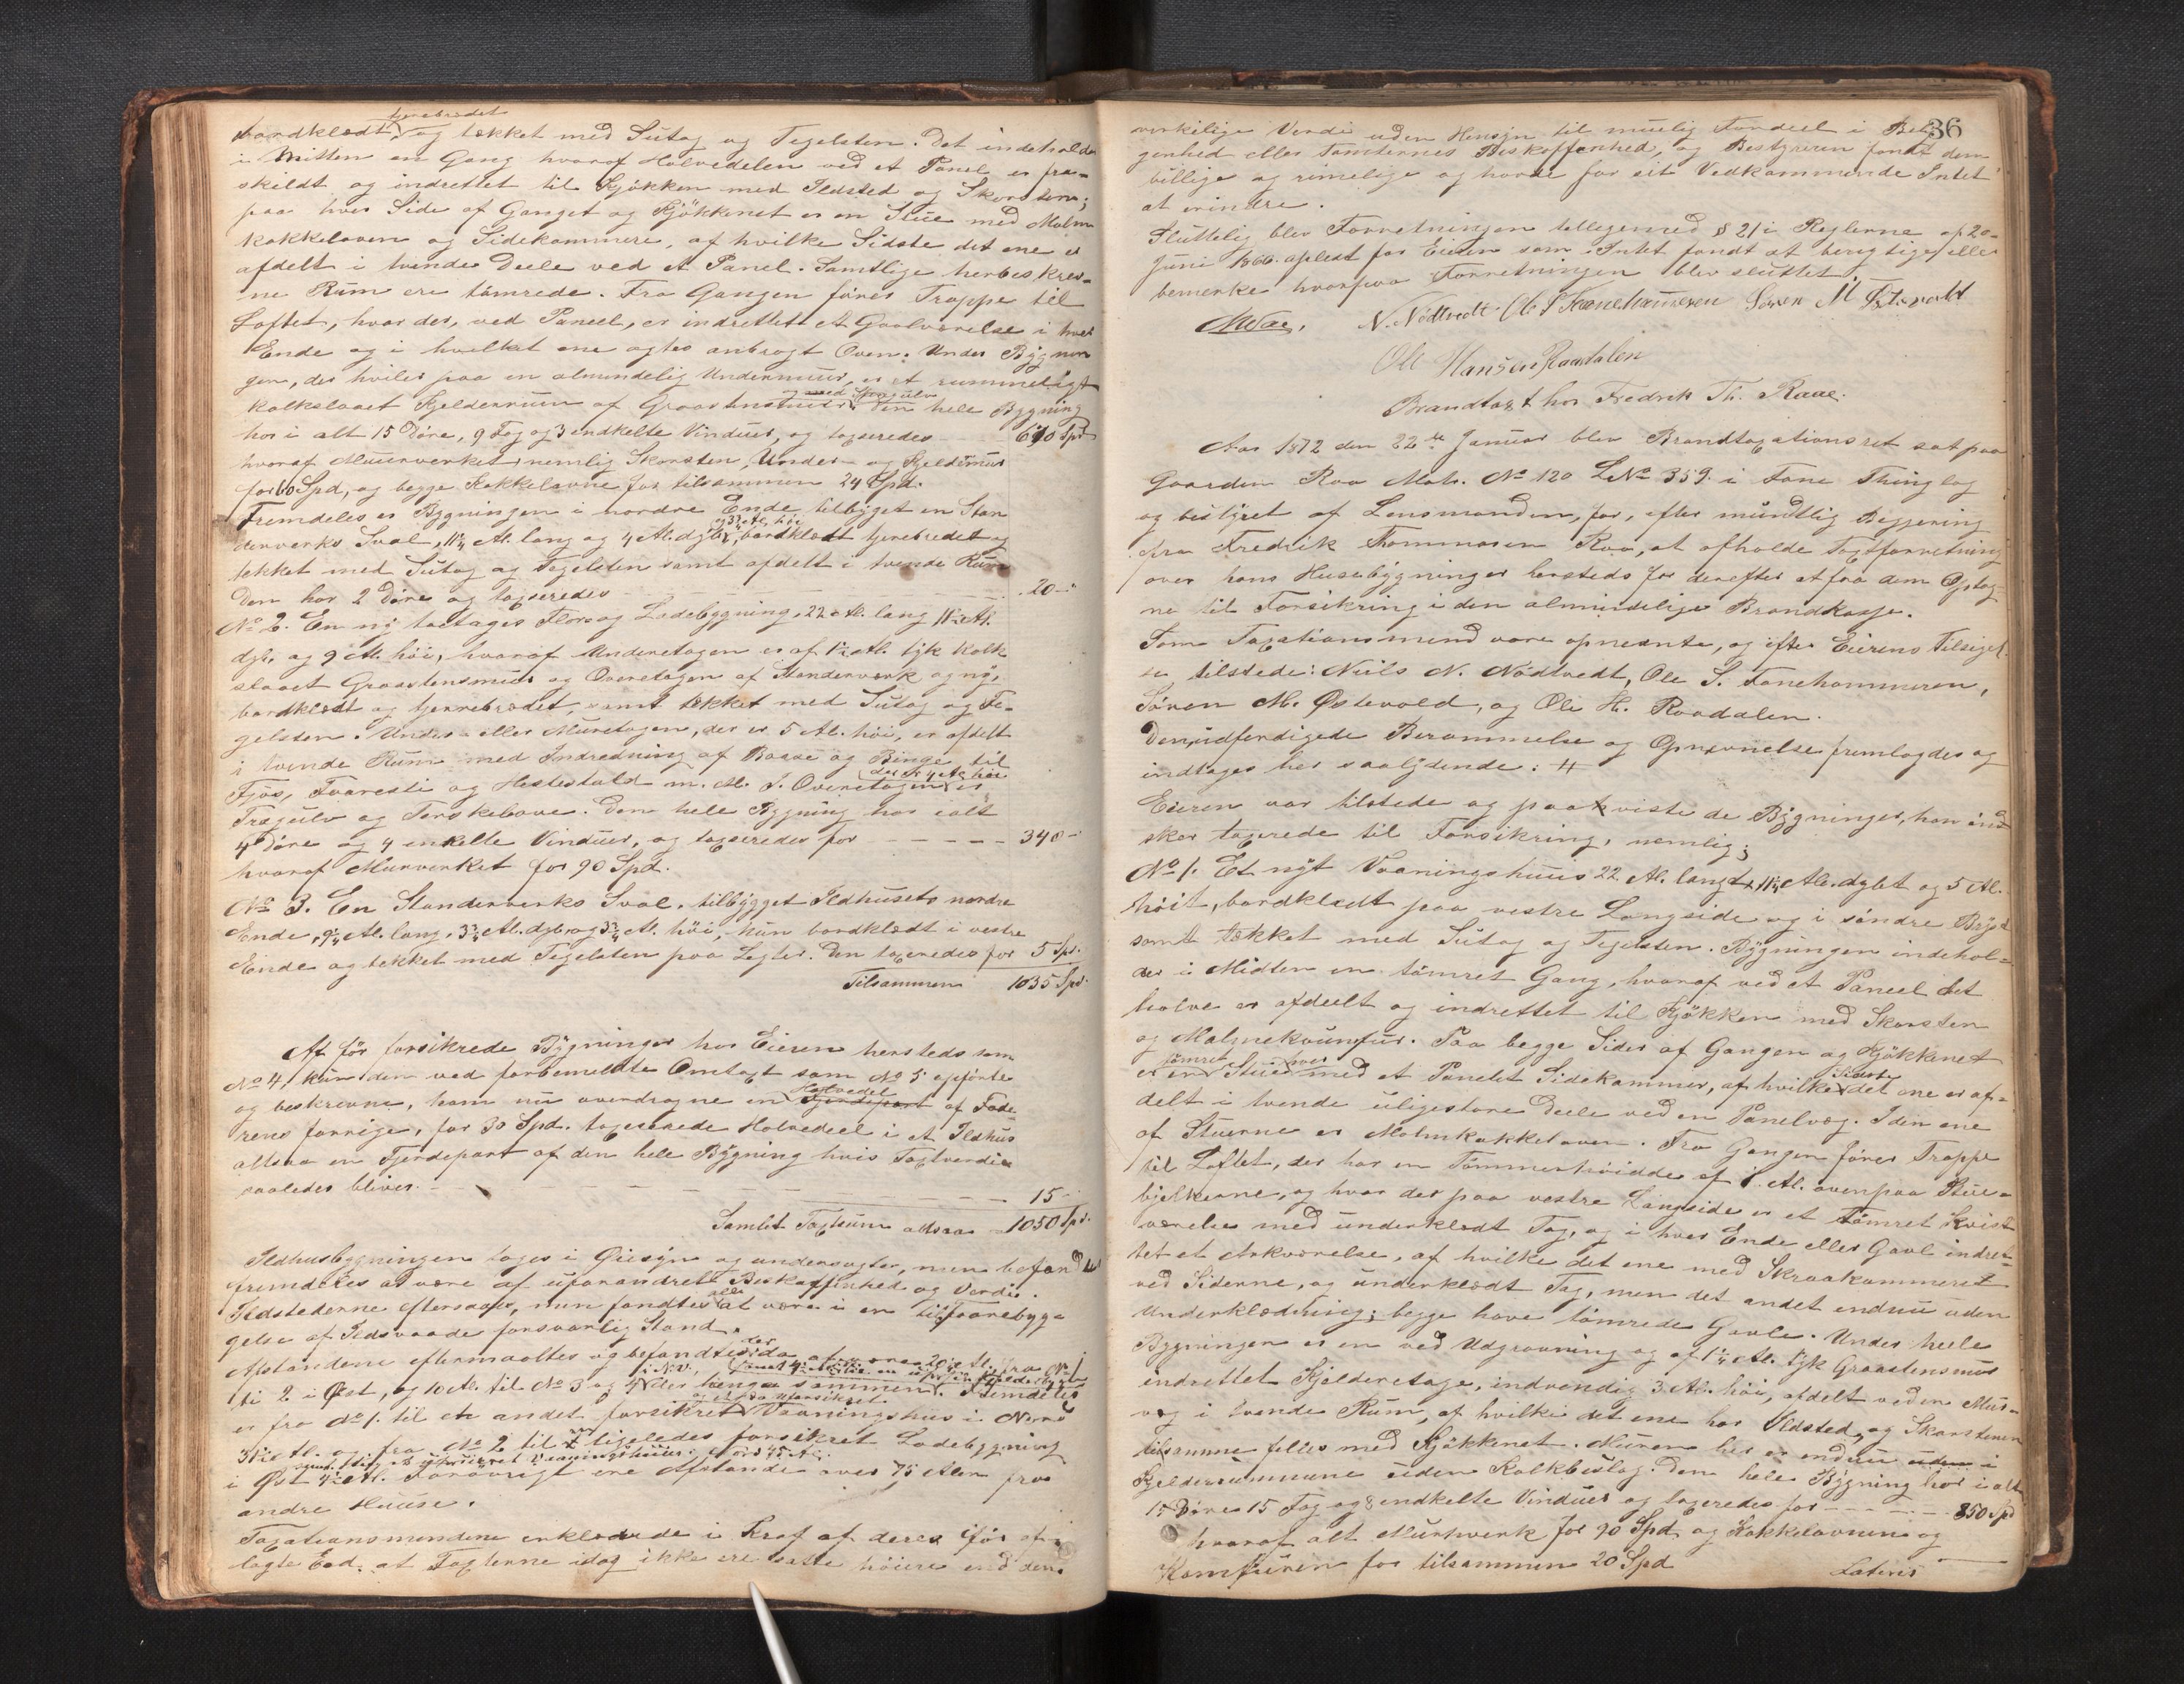 tjærebrædet
bordklædt og tækket med Sutag og Tegelsten. Det indeholder
i Mitten en Gang hvoraf Halvedelen ved et Panel er fra-
skildt og indrettet til Kjøkken med Ildsted og Skorsten;
paa hver Side af Ganget og Kjøkkenet er en Stue med Malm
kakkelovn og Sidekammere, af hvilke Sidste det ene er
afdelt i tvende Deele ved et Panel. Samtlige herbeskrev-
ne Rum ere tømrede. Fra Gangen fører Trappe til
Loftet, hvor der, ved Paneel, er indrettet et Gavlværelse i hver
Ende og i hvilket ene agtes anbragt Oven. Under Bygnin
gen, der hviler paa en almindelig Undermuur, er et rummeligt
og med Steengulv
kalkslaaet Kjelderrum af Graastensmuur. Den hele Bygning
har i alt 15 Døre, 9 Fag og 3 endkelte Vinduer, og taxeredes 670 Spd
hvoraf Muurverket nemlig Skorsten, Under- og Kjeldermuur
for 60 Spd, og begge Kakkelovne for tilsammen 24 Spd.
Fremdeles er Bygningen i nordre Ende tilbygget en Stan
og 3¾ Al. høi
derverks Sval, 11¼ Al. lang og 4 Al. dyb, bordklædt tjærebrædet og
tækket med Sutag og Tegelsten samt afdelt i tvende Rum
Den har 2 Døre og taxeredes - - - 20 - "
No 2. En ny toetages Flor og Ladebygning, 22 Al. lang 11½ Al.
dyb, og 9 Al. høi, hvoraf Underetagen er af 1½ Al. tyk kalk
slaaet Graastensmuur og Overetagen af Standerverk og ny,
bordklædt og tjærebrædet, samt tækket med Sutag og Te-
gelsten. Under- eller Muretagen, der er 5 Al. høi, er afdelt
i tvende Rum med Indredning af Baase og Binge til
der er 4 Al. høi
Fjøs, Faaresti og Hestestald m. M. I. Overetagen er
Trægulv og Tærskelaave. Den hele Bygning har ialt
4 Døre og 4 enkelte Vinduer, og taxeredes for - - - - - 340 -
hvoraf Murverket for 90 Spd.
No 3. En Standerverks Sval, tilbygget Ildhusets nordre
Ende, 9¼ Al. lang, 3¾ Al. dyb og 3¾ Al. høi, kun bordklædt i vestre
Ende og tækket med Tegelsten paa Legter. Den taxeredes for 5 Spd.
Tilsammen 1035 Spd.
Af før forsikrede Bygninger har Eieren hersteds som
No 4, kun den ved forbemeldte Omtaxt som No 5 opførte
Halvedel
og beskrevne, ham nu overdragne en Fjerdepart af Fade
rens forrige, for 30 Spd. taxerede Halvedeel i et Ildhus
altsaa en Fjerdepart af den hele Bygning hvis Taxtverdie
saaledes bliver - - - 15 - "
Samlet Taxtsum altsaa 1050 Spd.
Ildhusbygningen toges i Øiesyn og undersøgtes, men befandtes
fremdeles at være af uforandrett Beskaffenhed og Verdie.
alle
Ildstederne eftersaaes, men fandtes at være i en til Forebyg-
gelse af Ildsvaade forsvarlig Stand.
Afstandene eftermaaltes og befandtes da at være 20 Al. fra No 1
til 2 i Øst, og 10 Al. til No 3 og 4 der hænge sammen. Fremdeles
er fra No 1. til et andet forsikret Vaaningshus i Nord
31½ Al. og fra No 2 til et ligeledes forsikret Ladebygning
i Øst 4½ Al. Forøvrigt ere Afstande over 75 Alen fra
andre Huuse.
Taxationsmændene erklærede i Kraf af deres før af-
lagte Eed, at Taxterne idag ikke ere satte høiere end den
36
virkelige Verdi uden Hensyn til muelig Fordeel i Beli-
genhed eller Tomternes Beskaffenhed, og Bestyreren fandt dem
billige og rimelige og havde for sit Vedkommende Intet
at erindre.
Sluttelig blev Forretningen tilligemed § 21 i Reglerne af 20-
Juni 1866. oplæst for Eieren som Intet fandt at berigtige eller
bemerke hvorpaa Forretningen blev sluttet,
N. Nödtvedt Ole S Fanehammeren Søren M Østevold
Ole Hansen Raadalen
Brandtaxt hos Fredrik Th. Raae.
Aar 1872 den 22de Januar blev Brandtaxationsret sat paa
Gaarden Raa Matr. No 120 LNo 359. i Fane Thinglag
og bestyret af Lensmanden, for, efter mundtlig Begjering
fra Fredrik Thommasen Raa, at afholde Taxtforretning
over hans Husebygninger hersteds for derefter at faa dem Optag-
ne til Forsikring i den almindelige Brandkasse.
Som Taxationsmænd vare opnævnte, og efter Eierens Tilsigel-
se tilstede: Niels N. Nödtvedt, Ole S. Fanehammeren,
Søren M. Østevold, og Ole H. Raadalen.
Den udferdigede Berammelse og Opnævnelse fremlagdes og
indtages her saalydende: #
Eieren var tilstede og paaviste de Bygninger, han øn-
sker taxerede til Forsikring, nemlig;
No 1. Et nyt Vaaningshuus 22 Al. langt, 11¼ Al. dybt og 5 Al.
höit, bordklædt paa vestre Langside og i søndre Bryst
samt tækket med Sutag og Tegelsten. Bygningen indehol-
der i Midten en tømret Gang, hvoraf ved et Paneel det
halve er afdeelt og indrettet til Kjøkken med Skorsten
og Malmekomfur. Paa begge Sider af Gangen og Kjøkkenet
tømret hver Sidste
er en Stue med et Panelet Sidekammer, af hvilke det ene er af-
delt i tvende uligestore Deele ved en Panelvæg. I den ene
af Stuerne er Malmkakkelovn. Fra Gangen fører Trappe
til Loftet, der har en Tømmerhøidde af 1. Al. ovenpaa Stue-
bjelkerne, og hvor der paa vestre Langside er et tømret Kvist-
værelse med underklædt Tag, og i hver Ende eller Gavl indret-
tet et Arkværelse, af hvilke det ene med Skraakammeret
ved Siderne, og underklædt Tag, men det andet endnu uden
Underklædning; begge have tømrede Gavle. Under heele
Bygningen er en ved Udgravning og af 1¼ Al. tyk Graastensmur
indrettet Kjelderetage, indvendig 3 Al. høi, afdelt ved en Mur-
væg i tvende Rum, af hvilke det ene har Ildsted, og Skorstenen
tilsamme felles med Kjøkkenet. Muren her er endnu uden i
Kjelderrummene uden Kalkbeslag. Den hele Bygning har i alt
15 Døre 15 Fag og 8 endkelte Vinduer og taxeredes for - - - 850 Spd
hvoraf alt Murkverk for 90 Spd og Kakkelovnen og
Komfuren for tilsammen 20 Spd
Lateris